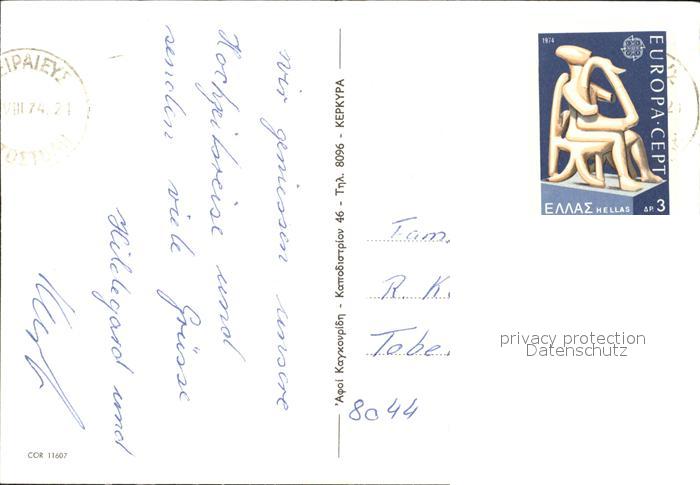 wir geniessen unsere
Hochzeitsreise und
senden viele Grüsse
Hildegard und
ΠΕΙΡΑΙΕΥΣ
VIII 74.21
Ἀφοί Καγκουρίδη - Καποδιστρίου 46 - Τηλ. 8096 - ΚΕΡΚΥΡΑ
1974
EUROPA·CEPT
ΕΛΛΑΣ HELLAS ΔΡ. 3
Fam.
R. K.
Tobe
8044
privacy protection
Datenschutz
COR 11607